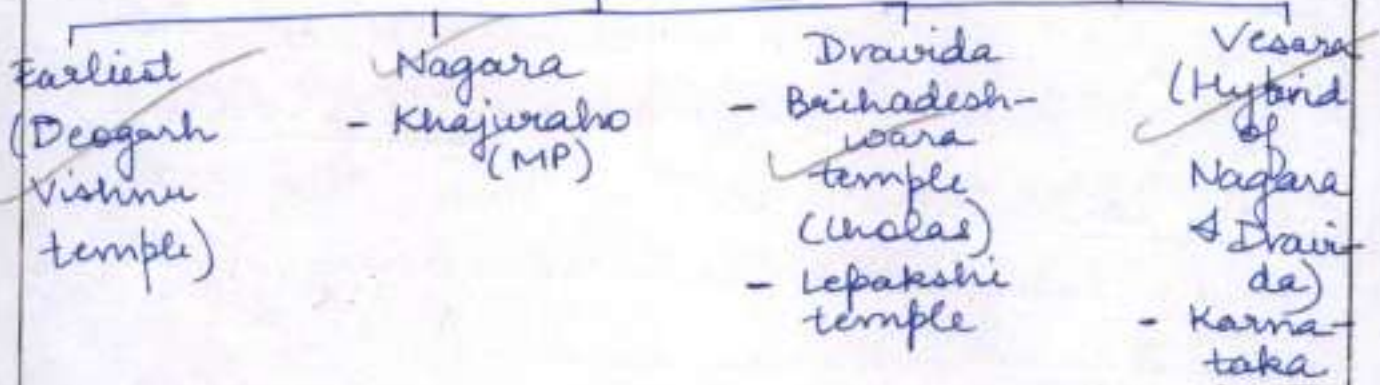 Earliest
(Deogarh
Vishnu
temple)
Nagara
- Khajuraho
(MP)
Dravida
- Brihadesh-
wara
temple
(Cholas)
- Lepakshi
temple
Vesara
(Hybrid
of
Nagara
& Dravi-
da)
- Karna-
taka